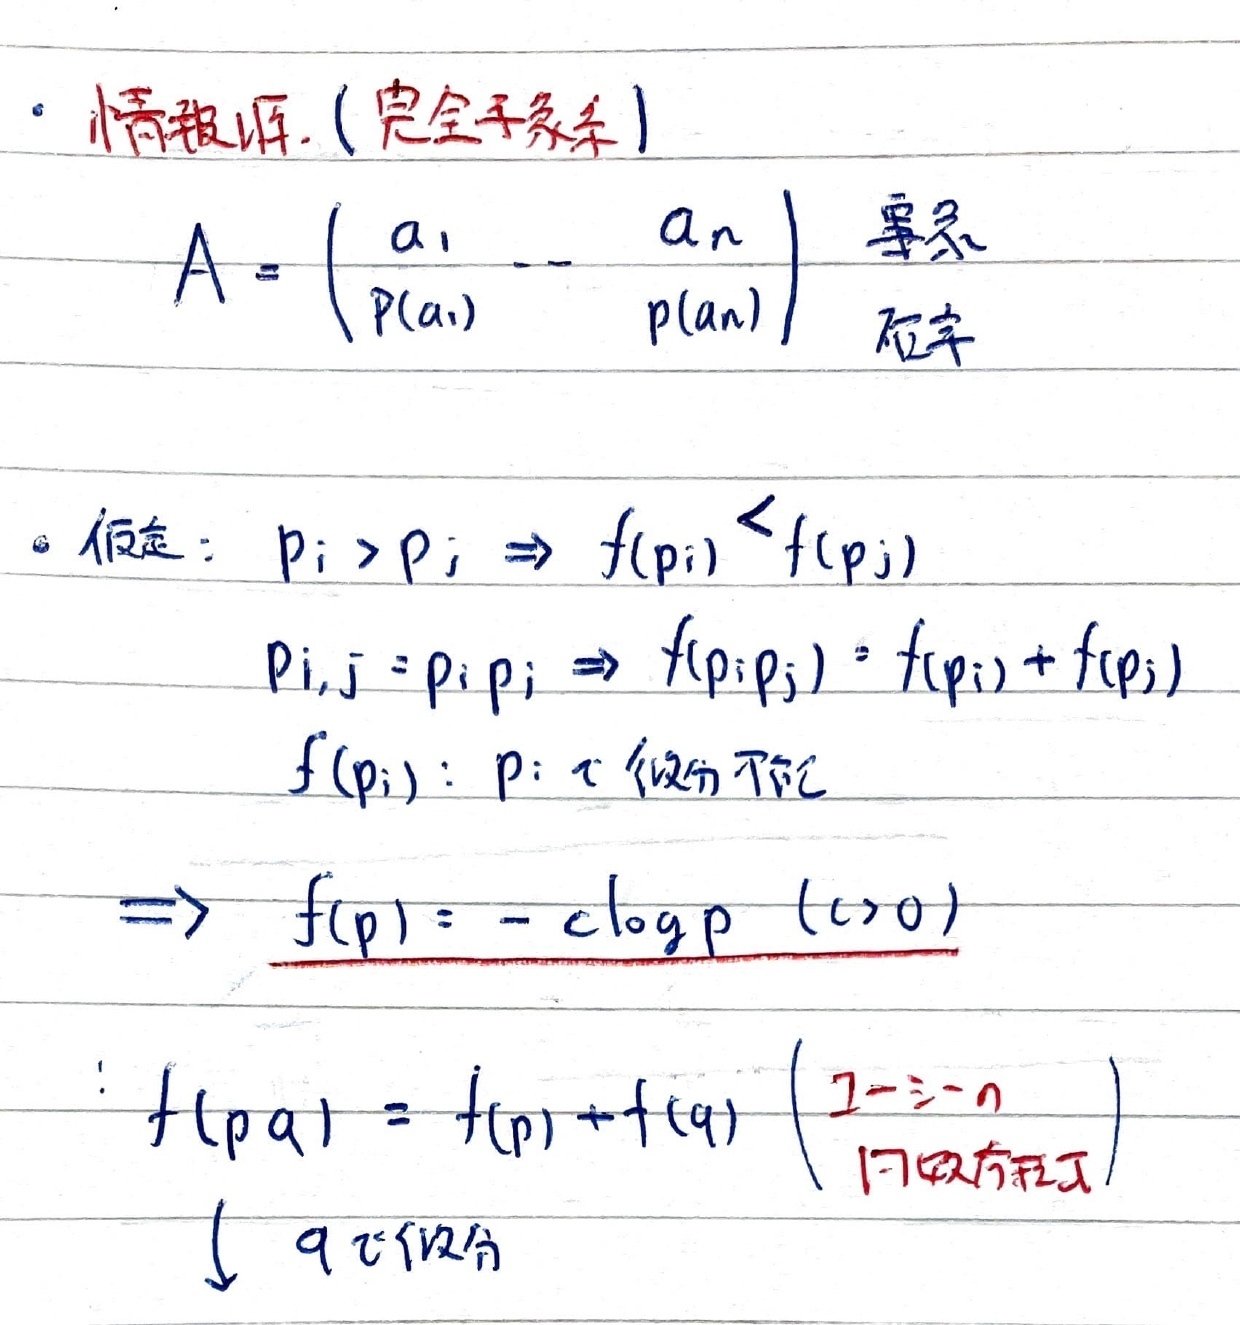 ・情報源.(完全事象系)
A = ( a₁ -- aₙ ) 事象
( p(a₁) p(aₙ) ) 確率
・仮定: pᵢ > pⱼ ⇒ f(pᵢ) < f(pⱼ)
pᵢ,ⱼ = pᵢ pⱼ ⇒ f(pᵢpⱼ) = f(pᵢ) + f(pⱼ)
f(pᵢ) : pᵢ で微分可能
⇒ f(p) = - c log p (c>0)
∵ f(pq) = f(p) + f(q) (コーシーの
関数方程式)
↓ qで微分